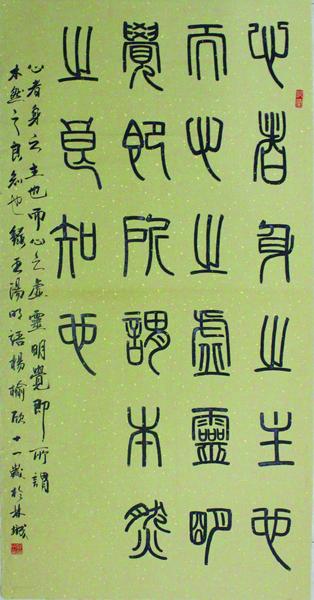 心者身之主也
而心之虚靈明
覺即所謂本然
之良知也
心者身之主也而心之虚靈明覺即所謂
本然之良知也錄王陽明語楊榆欣十一歲於林城